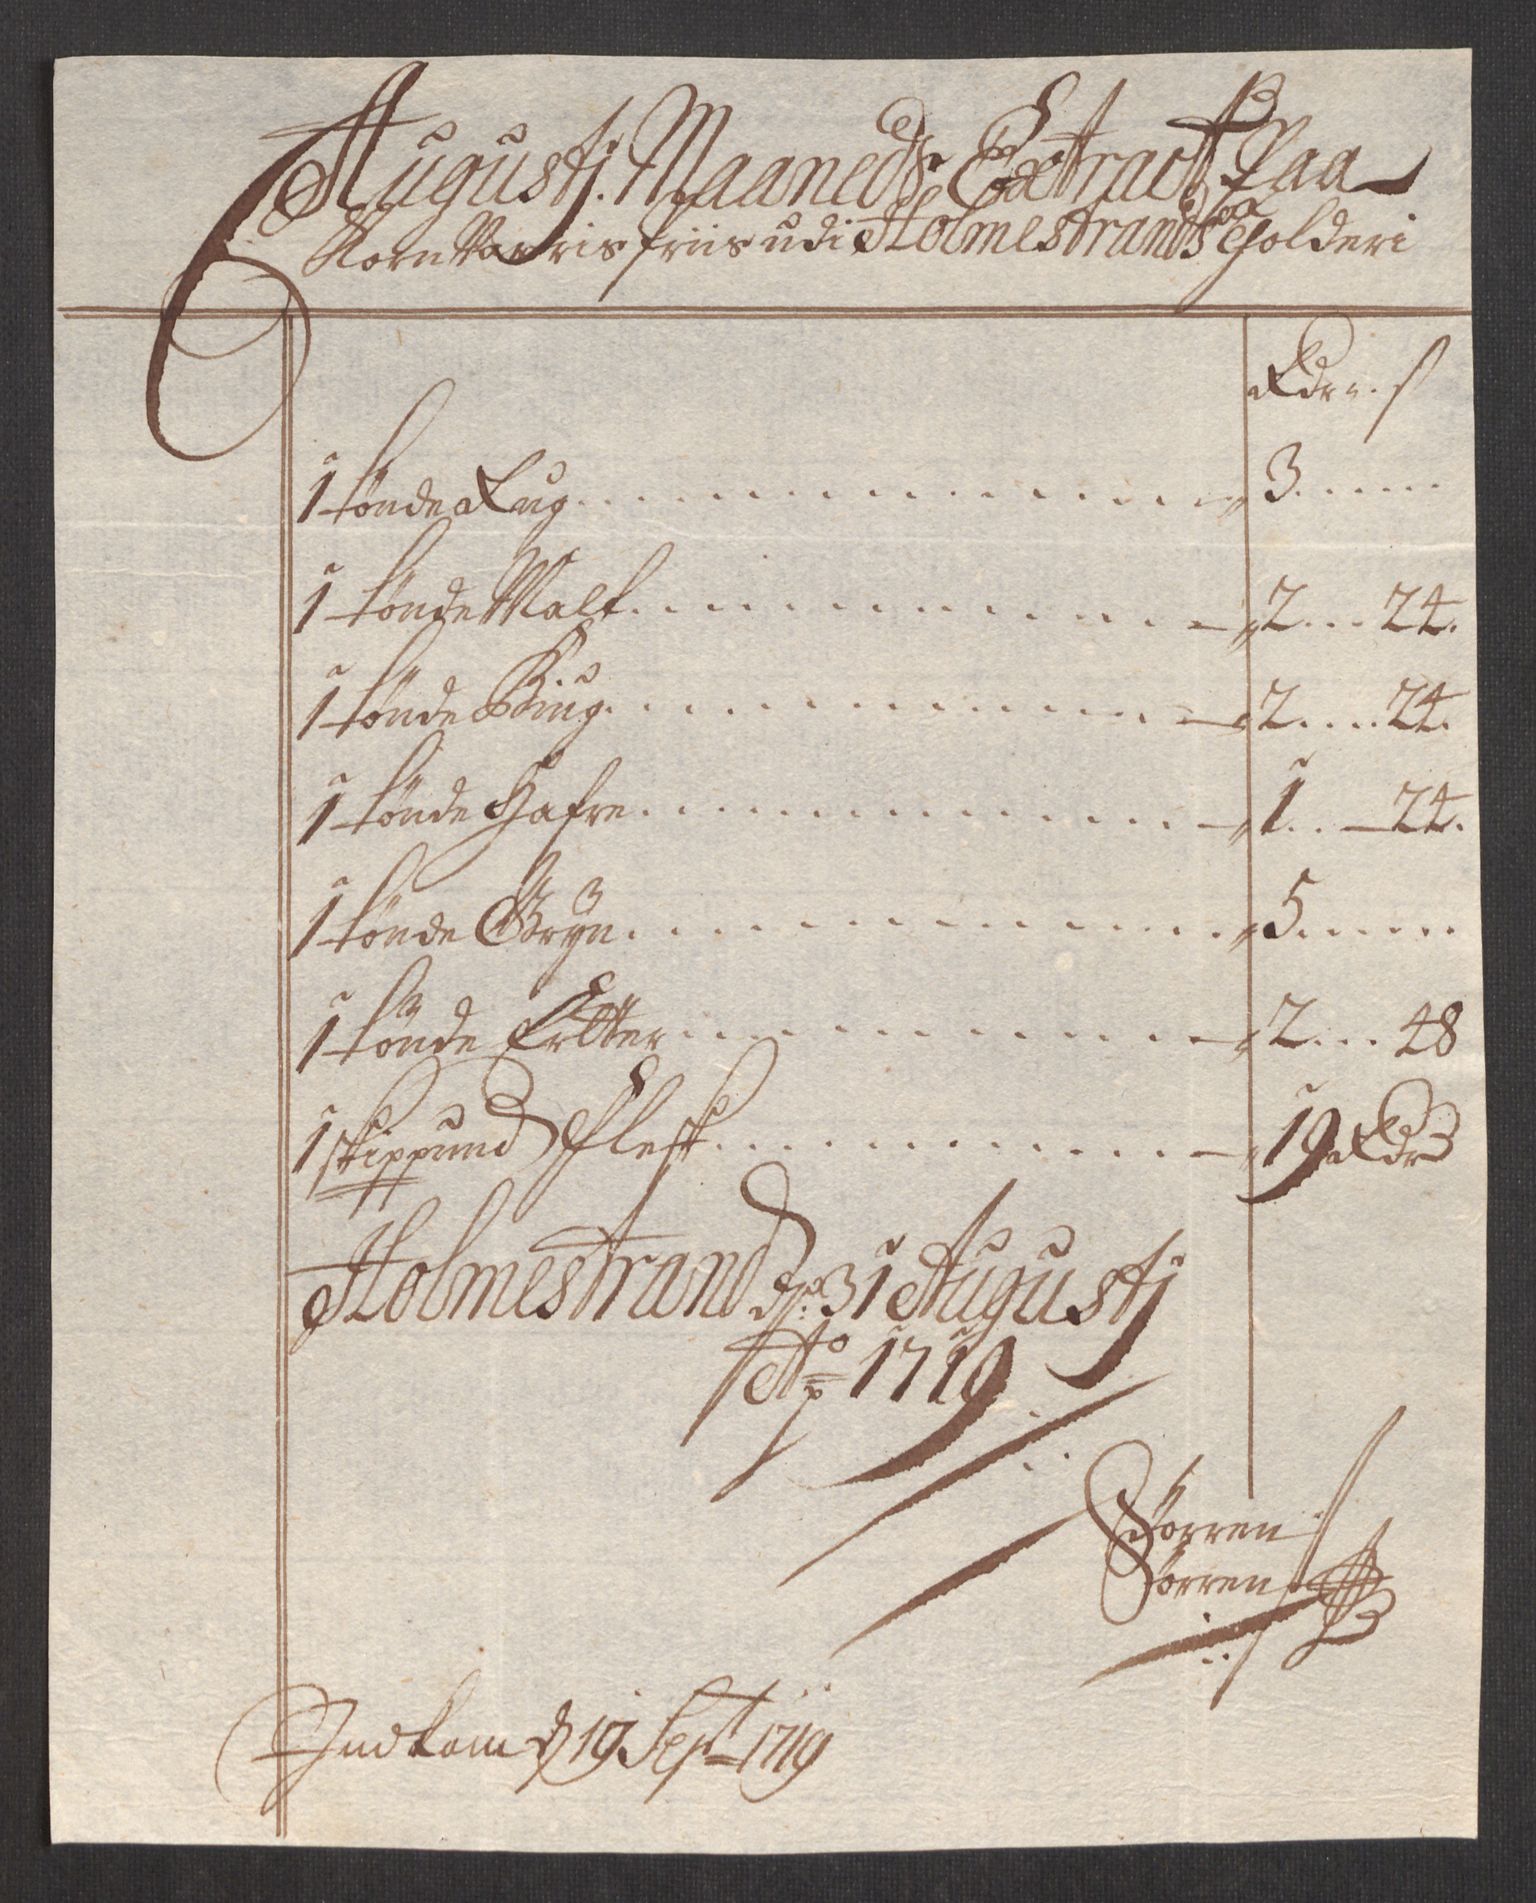 Augustj Maaneds Extract Paa
Korn Varris Priis udi Holmestrands Tolderi
Rdr. s
1 tønde Rug 3
1 tønde Malt 2 24.
1 tønde Biug 2 24.
1 tønde Hafre 1 24.
1 tønde Gryn 5
1 tønde Ertter 2 48
1 skippund Flesk 19 Rdr
Holmestrand d: 31 Augustj
Ao 1719
Sørren
Sørrens
Indkom d 19 Sept 1719